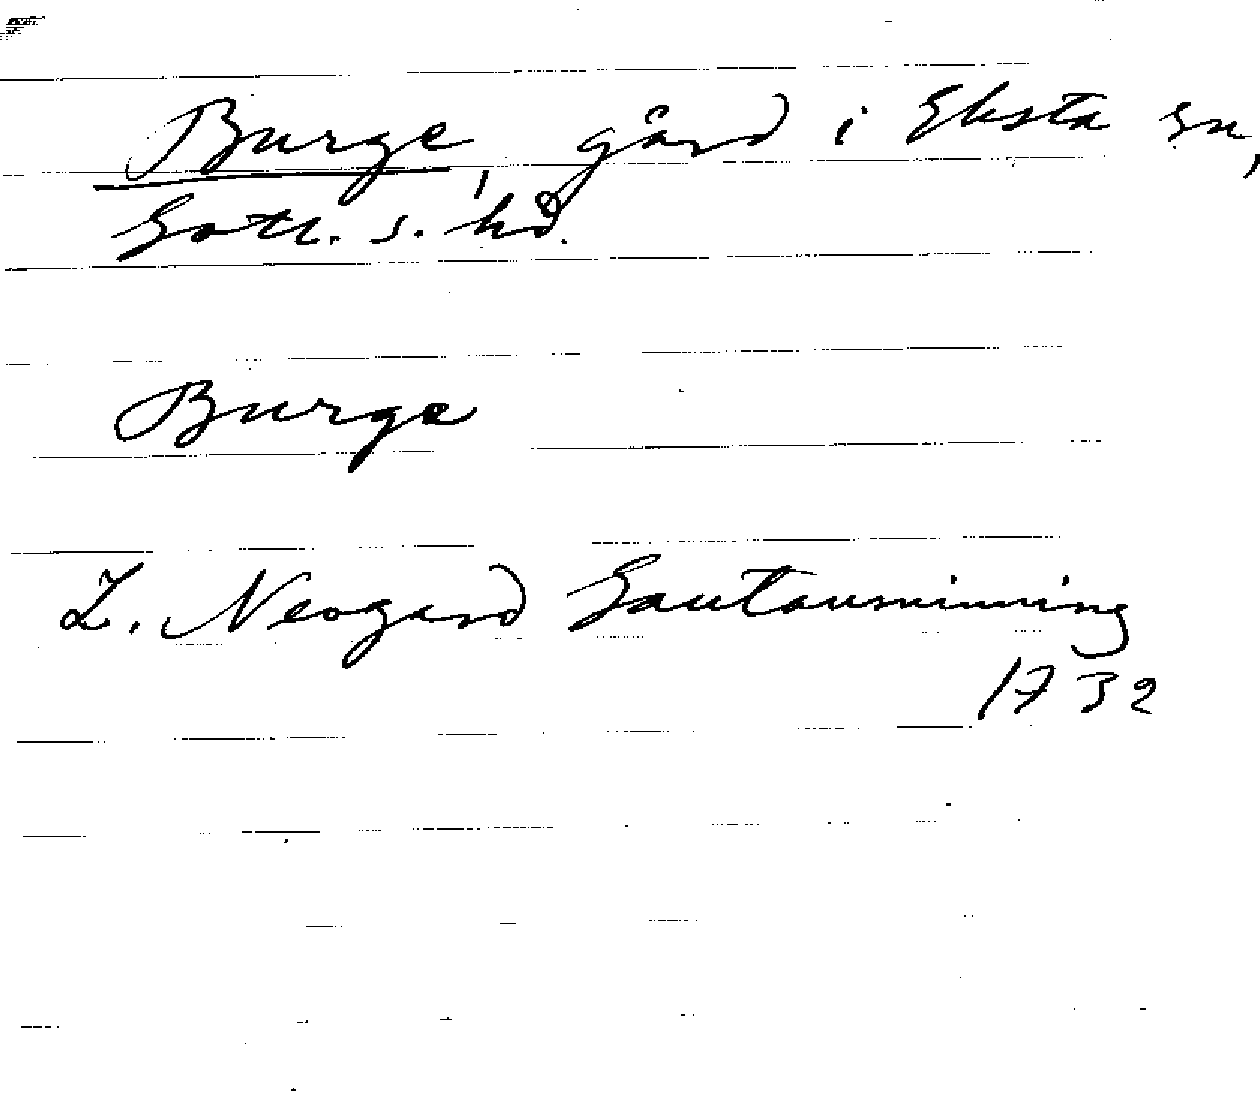 Burge, gård i Eksta sn,
Gotl. s. hd.
Burge
L. Neogard Gautauminning
1732